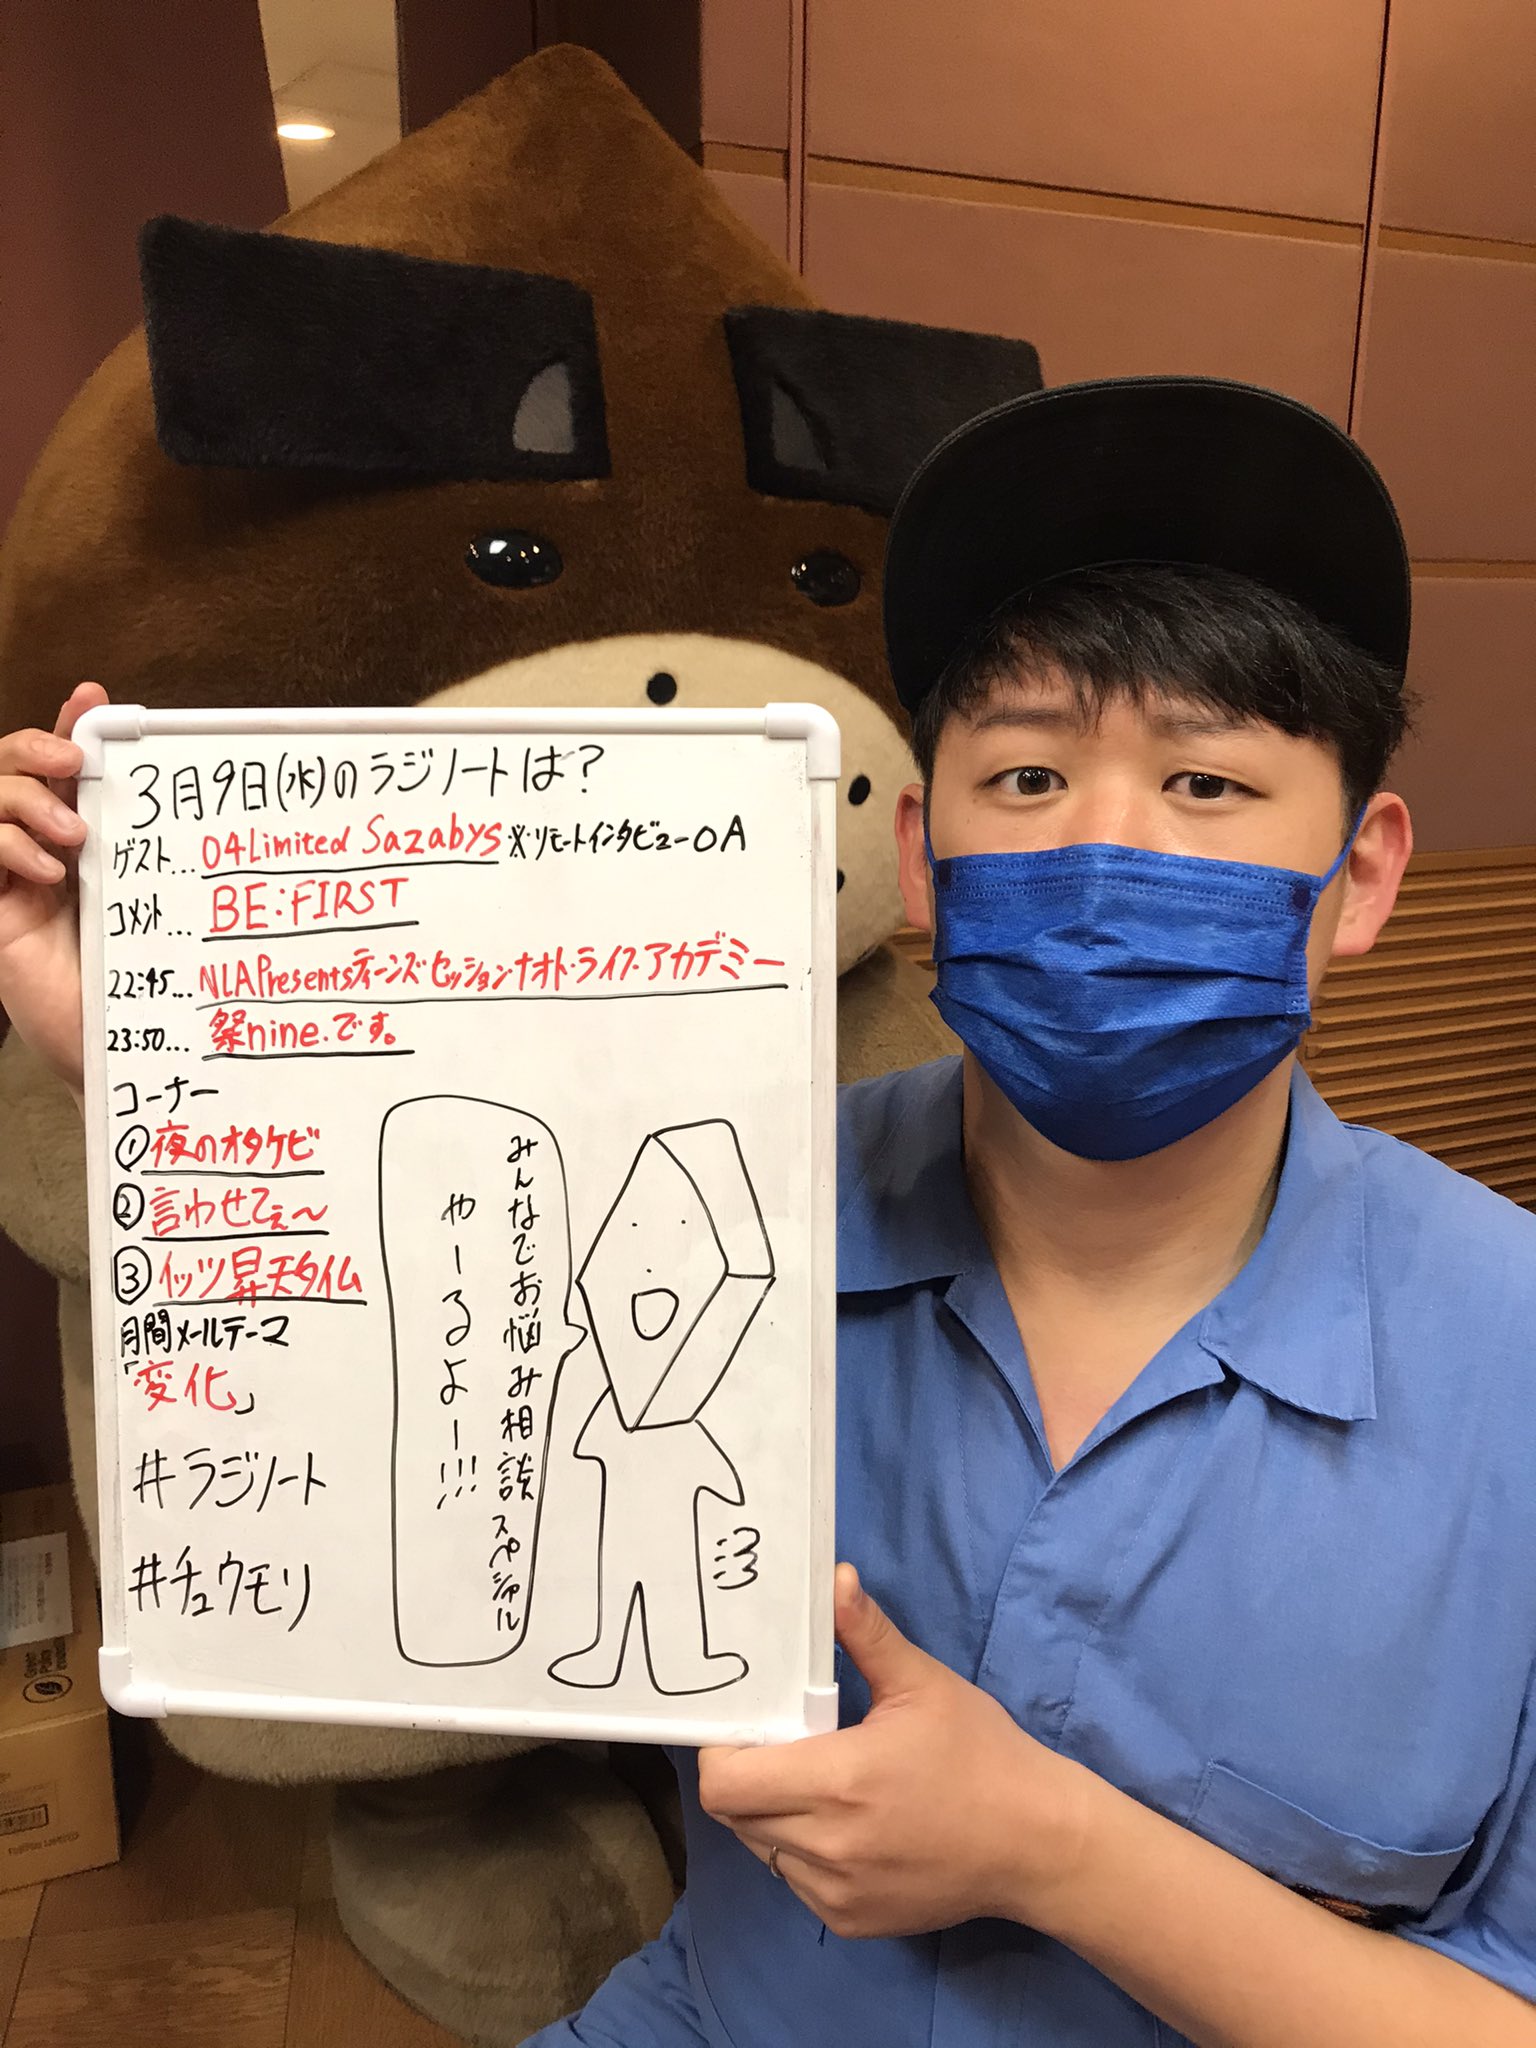 3月9日(水)のラジノートは?
ゲスト... 04Limited Sazabys ※リモートインタビューOA
コメント... BE:FIRST
22:45... NLAPresentsティーンズセッション・ナオト・ライブ・アカデミー
23:50... 祭nine.です。
コーナー
①夜のオタケビ
②言わせてぇ〜
③イッツ昇天タイム
月間メールテーマ
「変化」
#ラジノート
#チュウモリ
みんなでお悩み相談スペシャル
やーるよー!!!